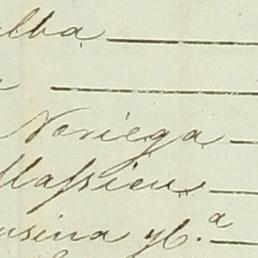 alba
Noriega
Massieu
usina yb.ª